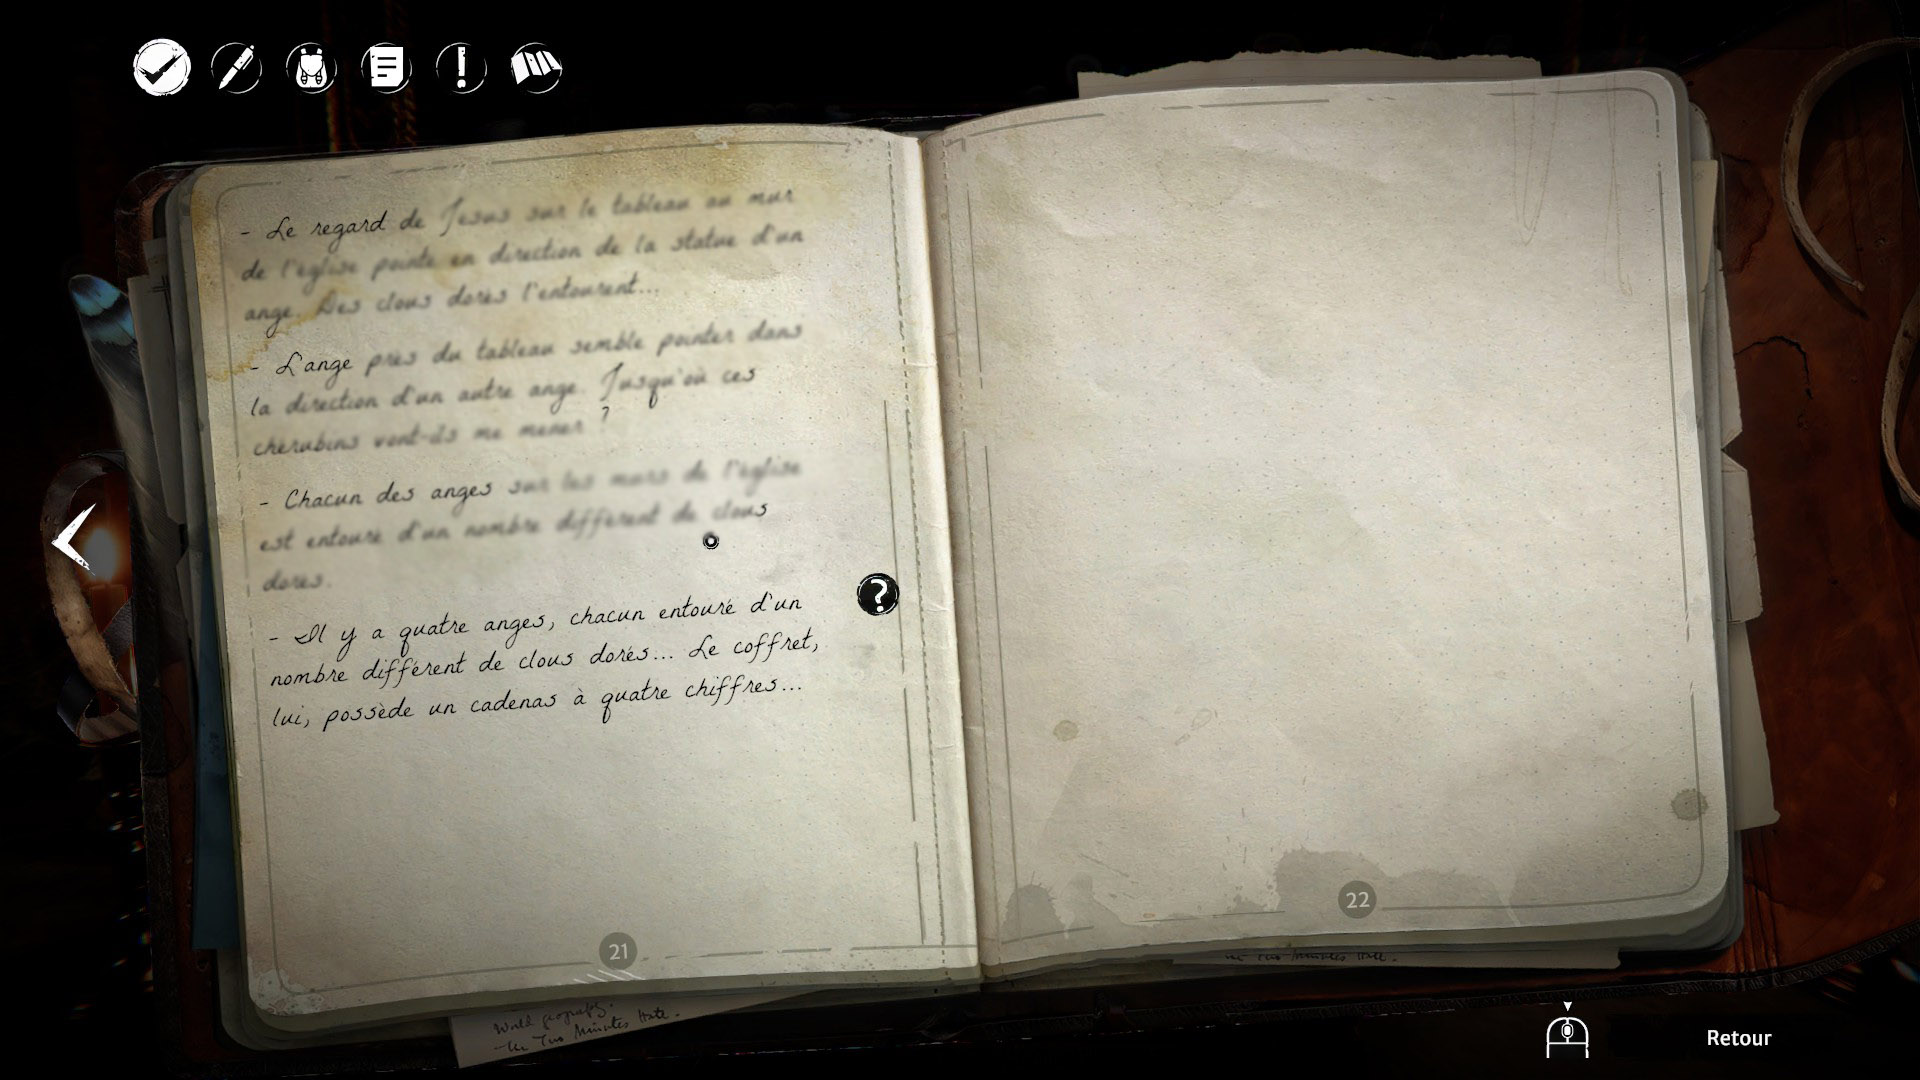 - Le regard de Jesus sur le tableau au mur
de l'église pointe en direction de la statue d'un
ange. Des clous dorés l'entourent...
- L'ange près du tableau semble pointer dans
la direction d'un autre ange. Jusqu'où ces
chérubins vont-ils me mener ?
- Chacun des anges sur les murs de l'église
est entouré d'un nombre différent de clous
dorés.
- Il y a quatre anges, chacun entouré d'un
nombre différent de clous dorés... Le coffret,
lui, possède un cadenas à quatre chiffres...
?
21
22
World geography.
Two Minutes Hate.
Two Minutes Hate.
Retour